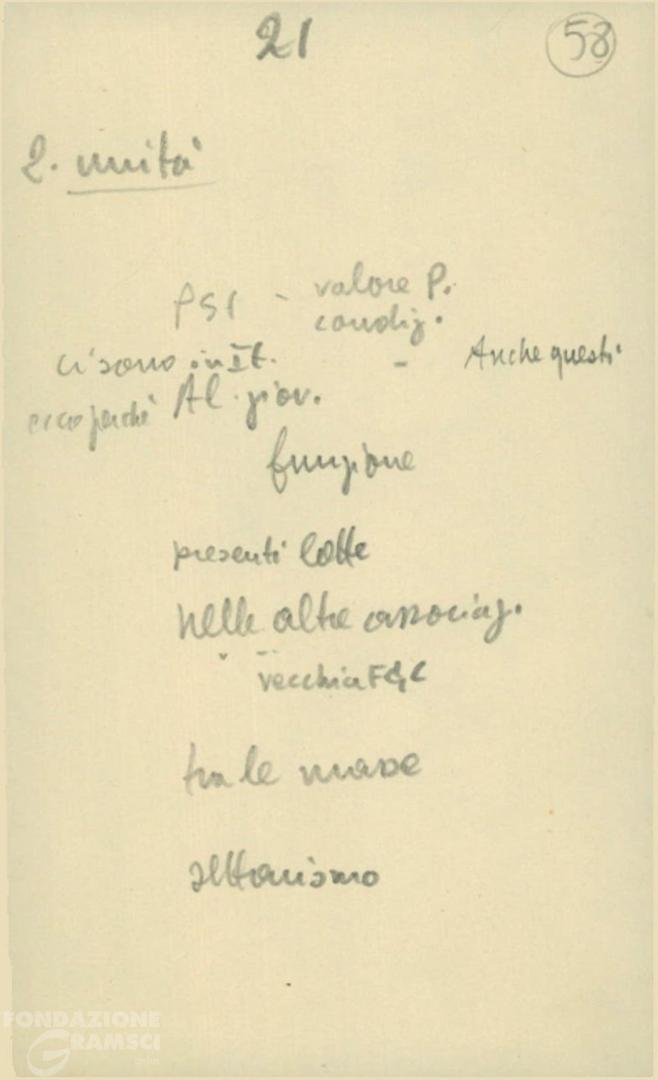 21
58
2. unità
PSI - valore P.
condiz.
ci sono in It. - Anche questi
ecco perché Al. giov.
funzione
presenti lotte
nelle altre associaz.
vecchia FGC
tra le masse
settarismo
FONDAZIONE
GRAMSCI